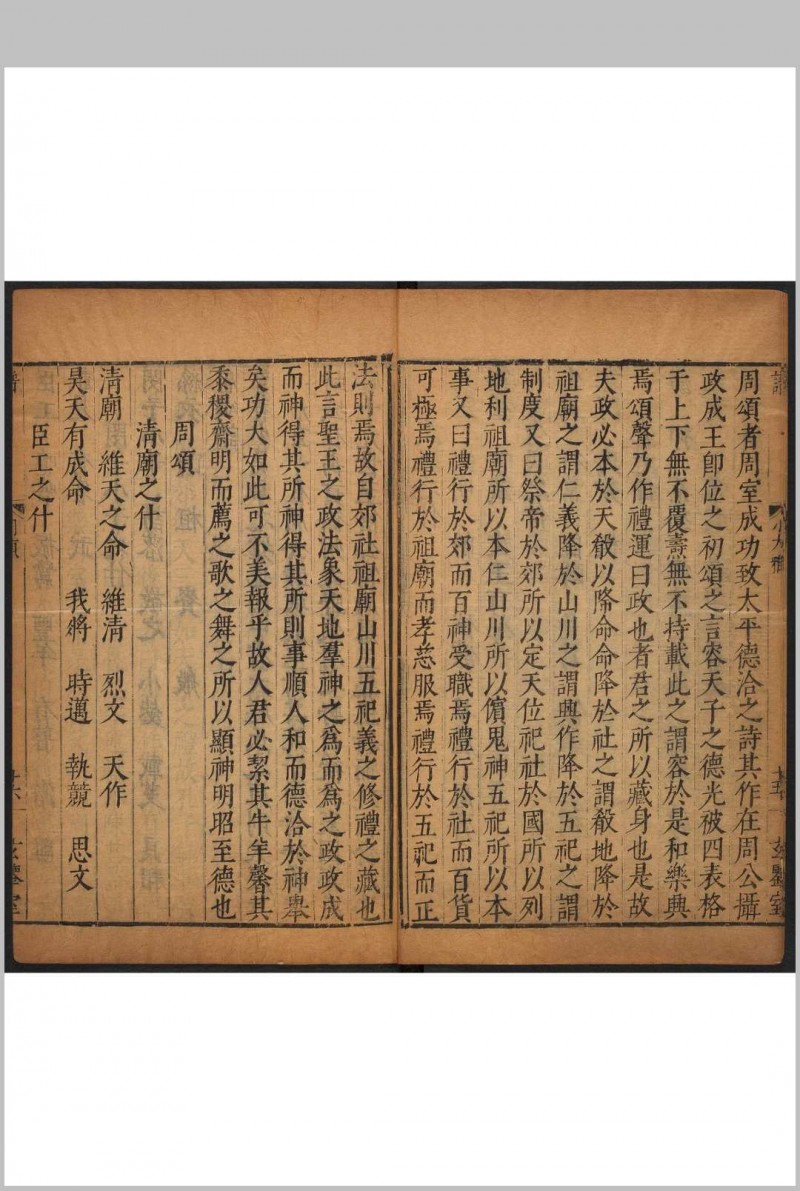 周頌者周室成功致太平德洽之詩其作在周公攝
政成王即位之初頌之言容天子之德光被四表格
于上下無不覆燾無不持載此之謂容於是和樂興
焉頌聲乃作禮運曰政也者君之所以藏身也是故
夫政必本於天殽以降命命降於社之謂殽地降於
祖廟之謂仁義降於山川之謂興作降於五祀之謂
制度又曰祭帝於郊所以定天位祀社於國所以列
地利祖廟所以本仁山川所以儐鬼神五祀所以本
事又曰禮行於郊而百神受職焉禮行於社而百貨
可極焉禮行於祖廟而孝慈服焉禮行於五祀而正
法則焉故自郊社祖廟山川五祀義之修禮之藏也
此言聖王之政法象天地羣神之為而為之政政成
而神得其所神得其所則事順人和而德洽於神舉
矣功大如此可不美報乎故人君必絜其牛羊馨其
黍稷齋明而薦之歌之舞之所以顯神明昭至德也
周頌
清廟之什
清廟 維天之命 維清 烈文 天作
昊天有成命 我將 時邁 執競 思文
臣工之什